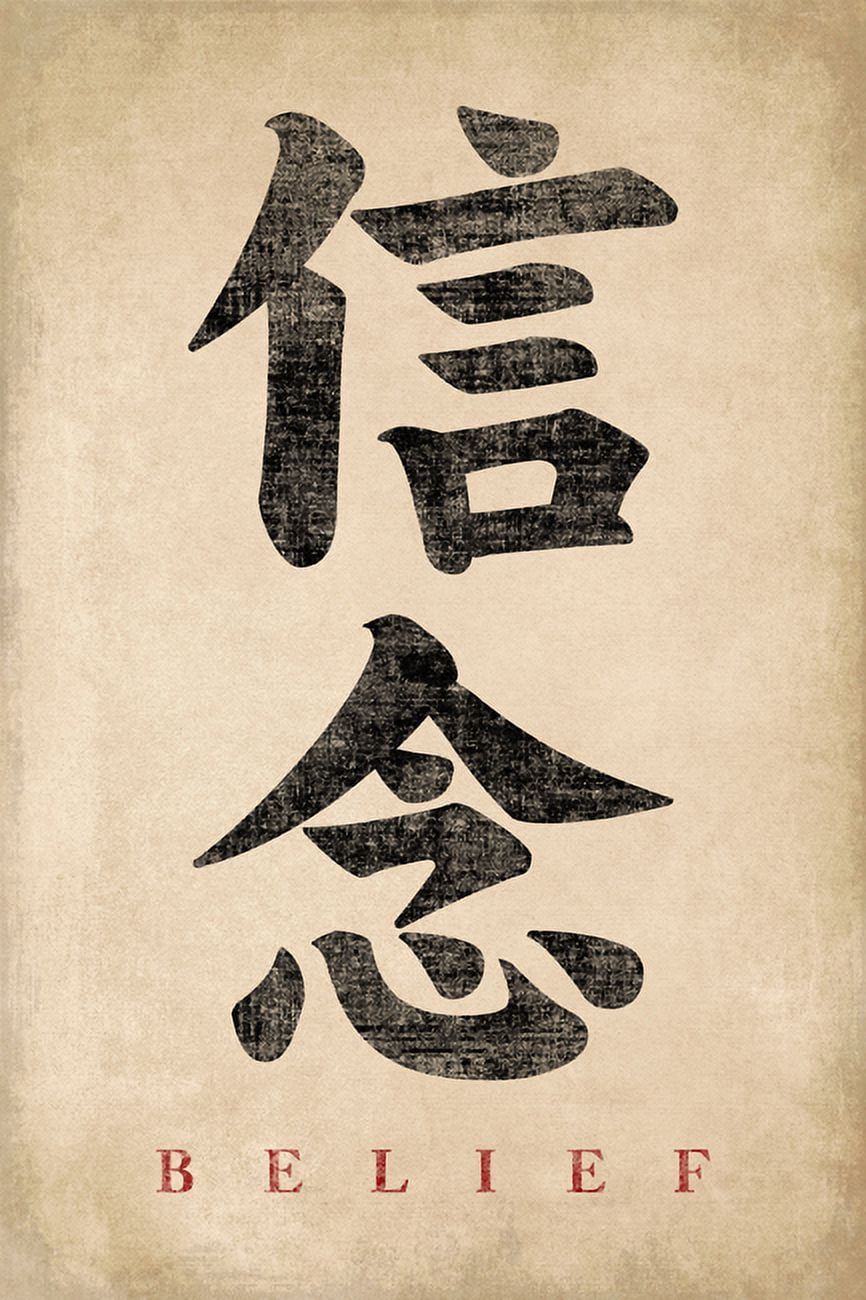 信
念
BELIEF